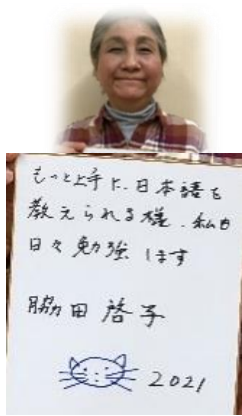 もっと上手に、日本語を
教えられる様、私も
日々勉強します
脇田啓子
2021